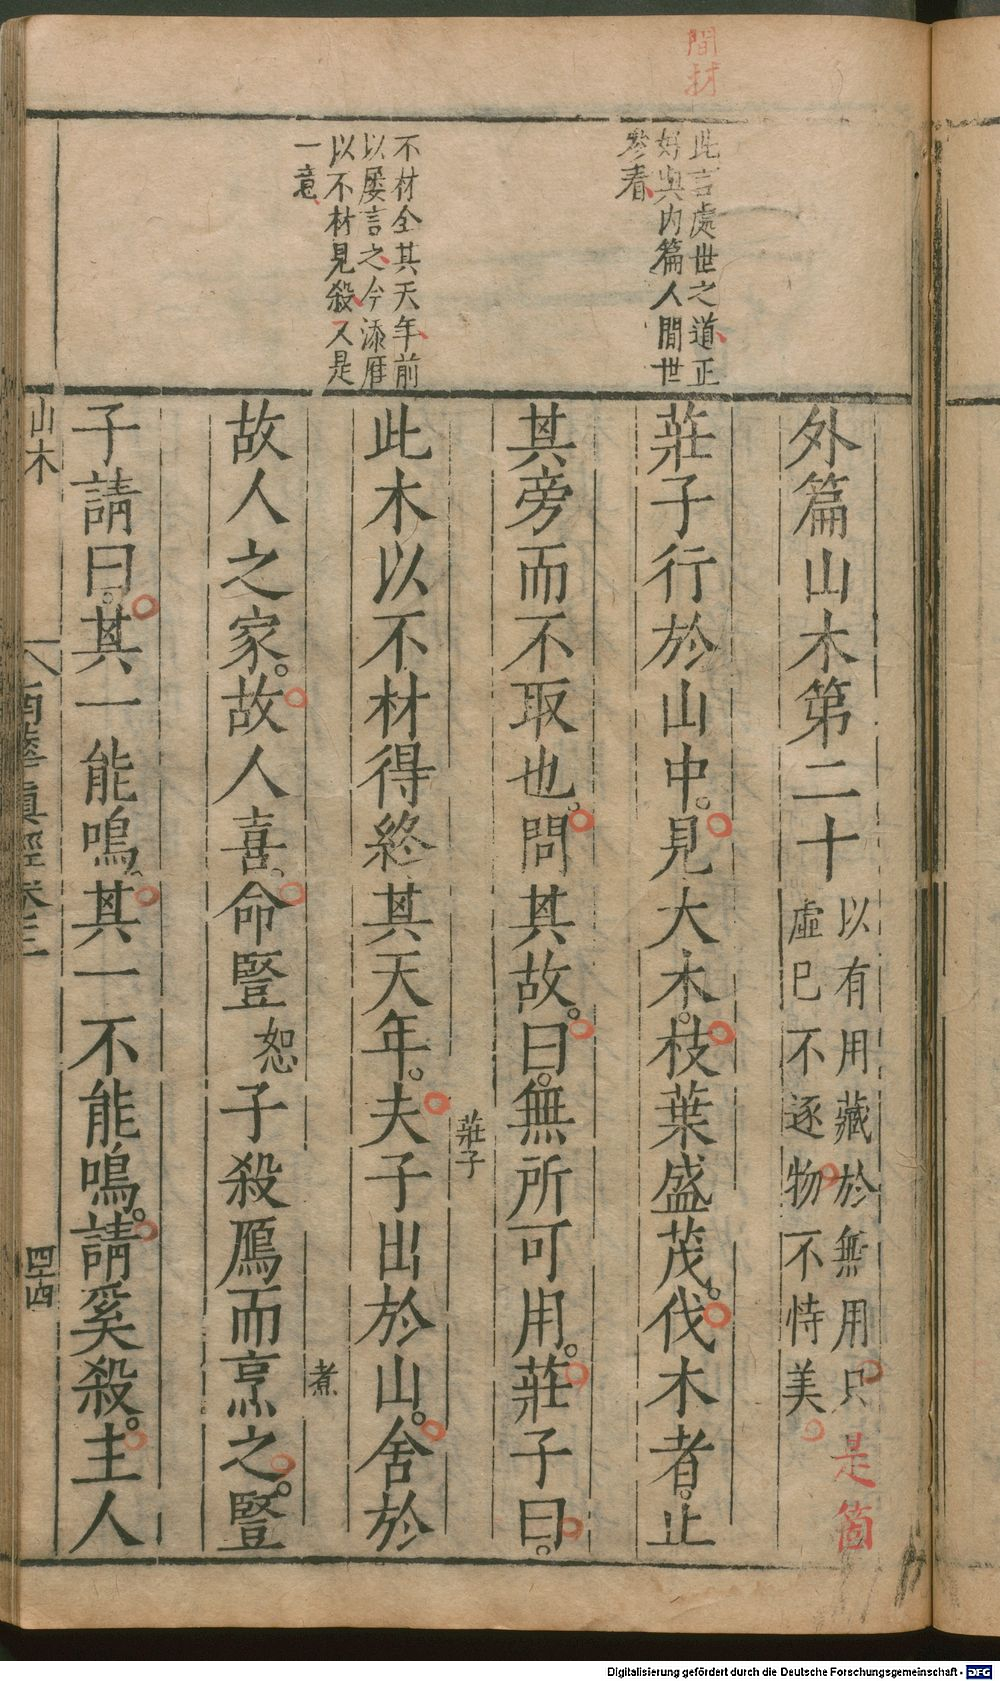 間材
此言處世之道正
好與内篇人間世
參看
不材全其天年前
以屢言之今添鴈
以不材見殺又是
一意
外篇山木第二十
以有用藏於無用只是箇
虛已不逐物不恃美
莊子行於山中。見大木。枝葉盛茂。伐木者。止
其旁而不取也。問其故。曰。無所可用。莊子曰。
此木以不材得終其天年。夫子出於山。舍於
莊子
故人之家。故人喜。命豎子殺鴈而烹之。豎
恕
煮
子請曰。其一能鳴、其一不能鳴。請奚殺。主人
山木
南華眞經卷三
四十四
Digitalisierung gefördert durch die Deutsche Forschungsgemeinschaft - DFG